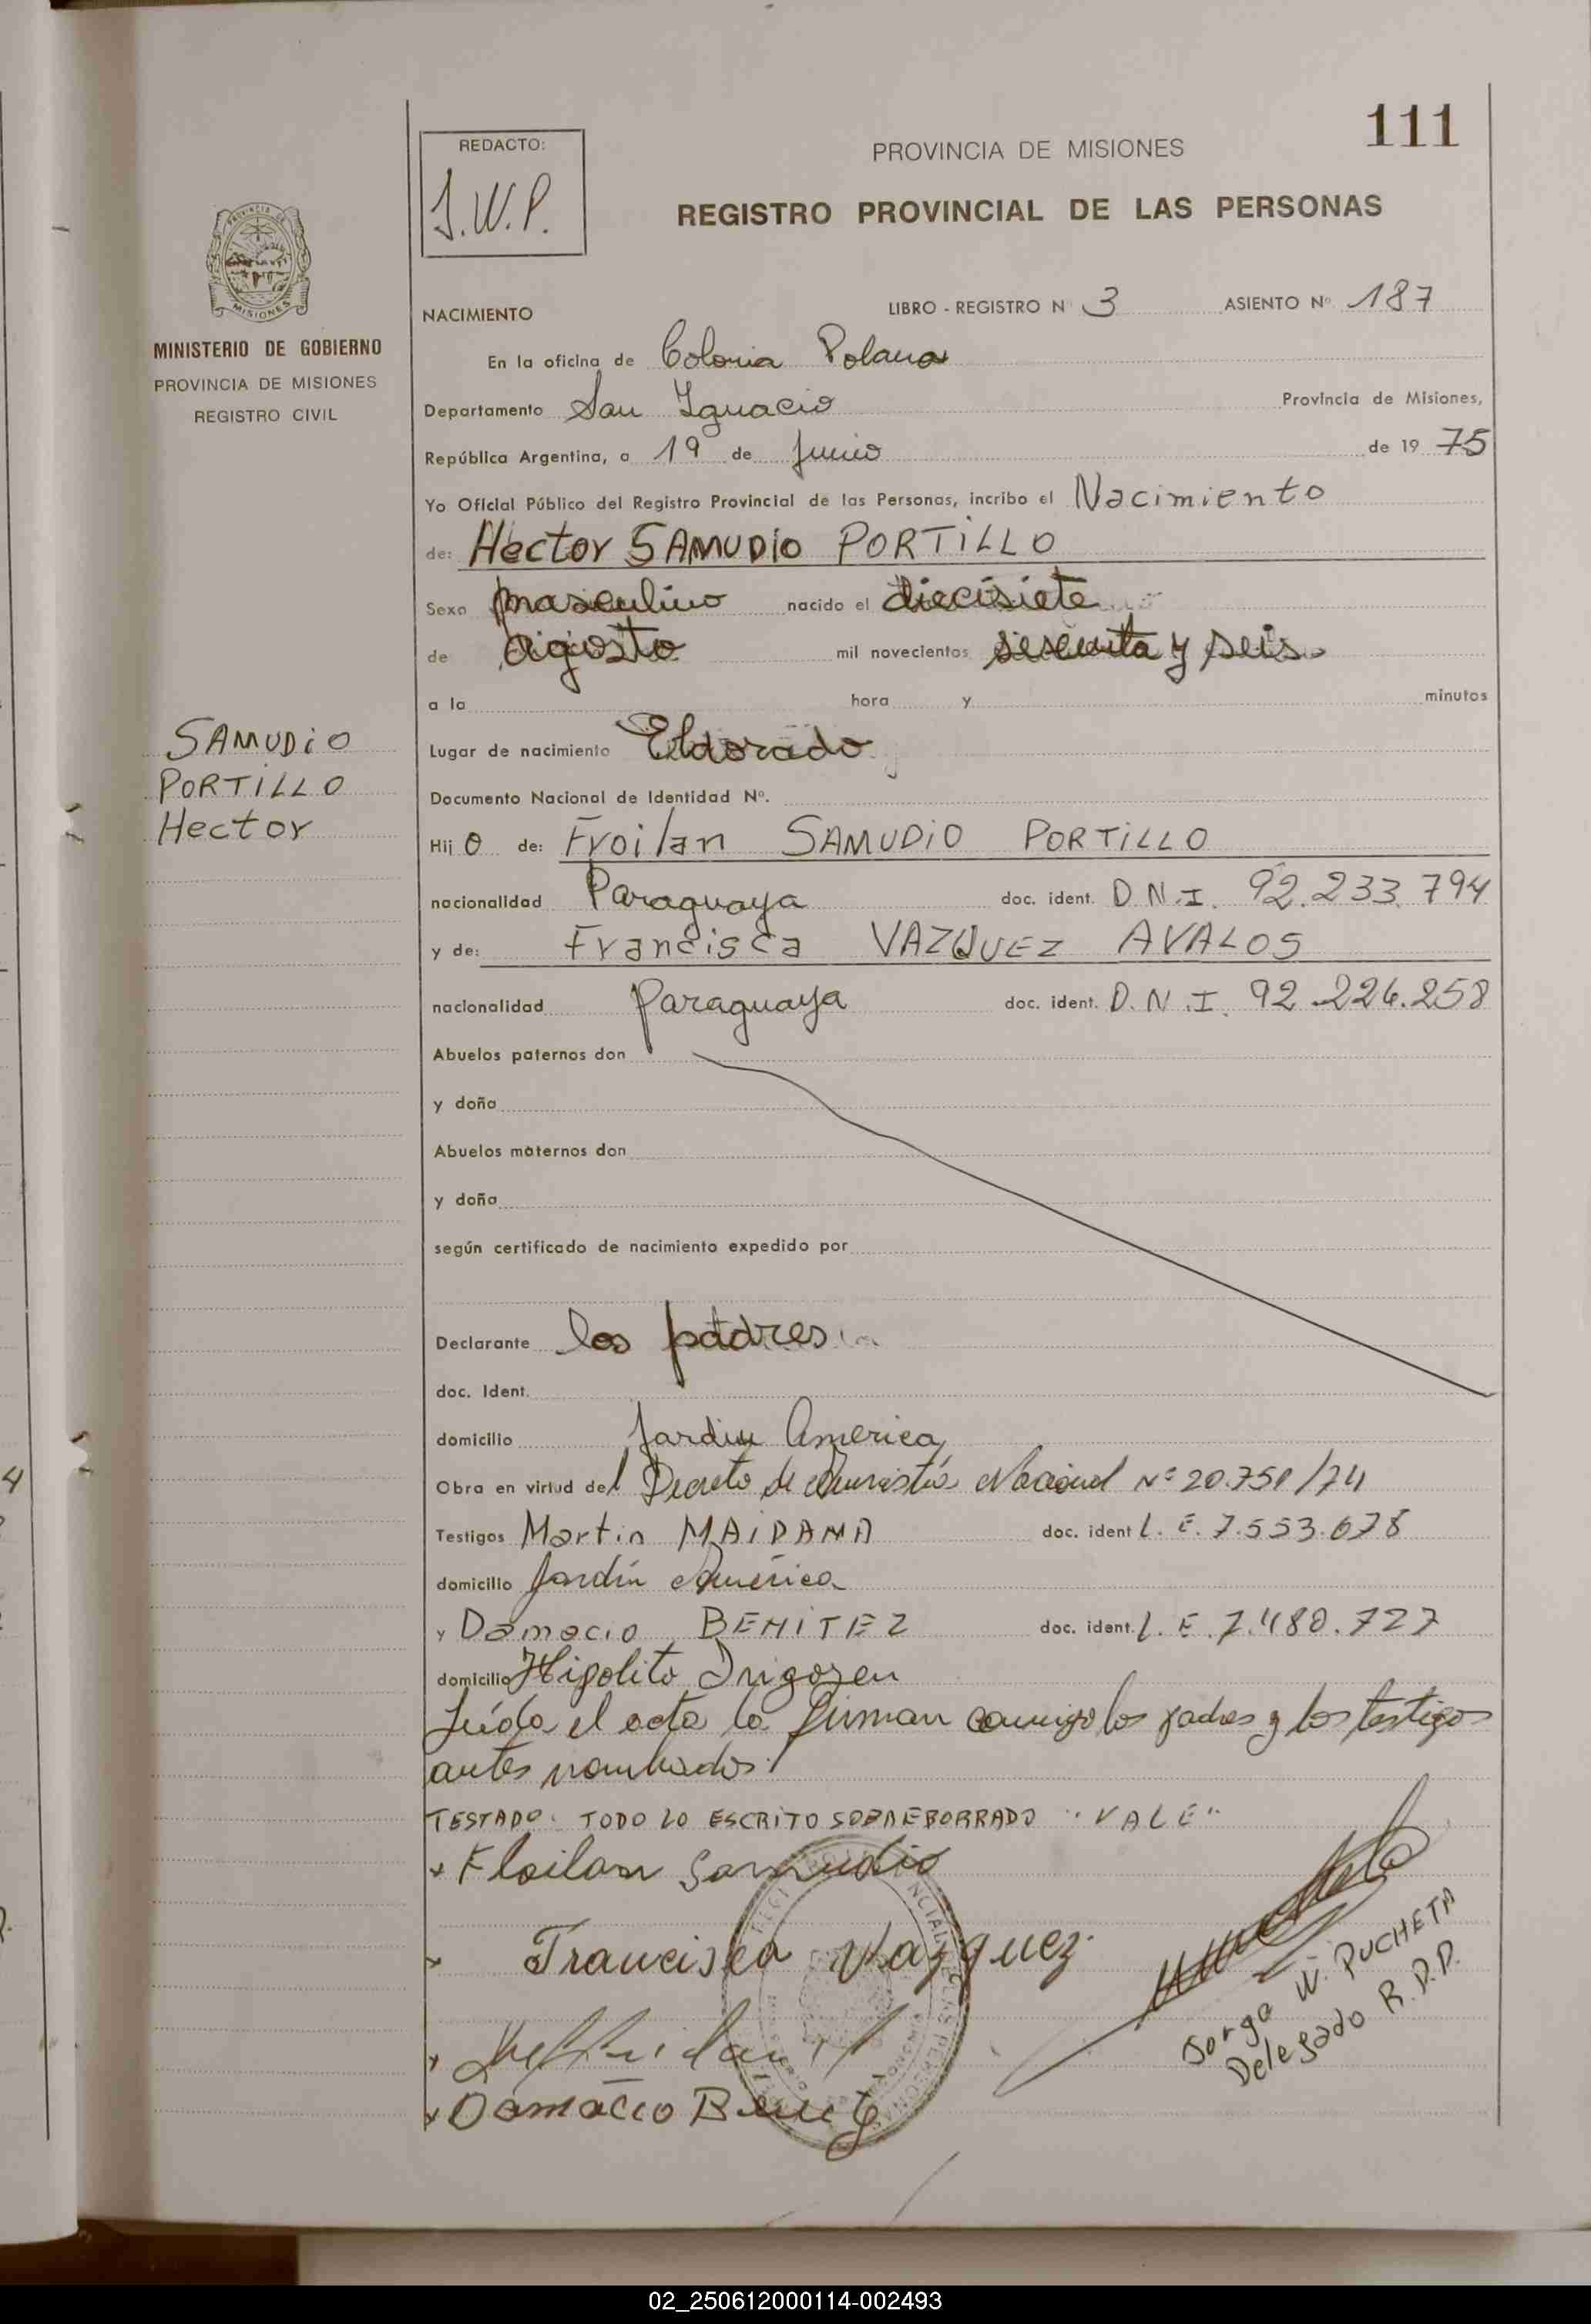 111
REDACTO:
J.W.P.
PROVINCIA DE MISIONES
REGISTRO PROVINCIAL DE LAS PERSONAS
PROVINCIA DE
MISIONES
MINISTERIO DE GOBIERNO
PROVINCIA DE MISIONES
REGISTRO CIVIL
NACIMIENTO LIBRO - REGISTRO N 3 ASIENTO Nº 187
En la oficina de Colonia Polana
Departamento San Ignacio Provincia de Misiones,
República Argentina, a 19 de Junio de 19 75
Yo Oficial Público del Registro Provincial de las Personas, incribo el Nacimiento
de: Hector SAMUDIO PORTILLO
Sexo masculino nacido el diecisiete
de agosto mil novecientos sesenta y seis
a la hora y minutos
SAMUDIO
PORTILLO
Hector
Lugar de nacimiento Eldorado
Documento Nacional de Identidad Nº.
Hij o de: Froilan SAMUDIO PORTILLO
nacionalidad Paraguaya doc. ident. D.N.I. 92.233.794
y de: Francisca VAZQUEZ AVALOS
nacionalidad Paraguaya doc. ident. D.N.I. 92.226.258
Abuelos paternos don
y doña
Abuelos maternos don
y doña
según certificado de nacimiento expedido por
Declarante los padres
doc. Ident.
domicilio Jardin America
Obra en virtud del Decreto de Amnistía Nacional Nº 20.751/74
Testigos Martin MAIDANA doc. ident L.E. 7.553.678
domicilio Jardín América
y Damacio BENITEZ doc. ident. L.E. 7.480.727
domicilio Hipolito Irigoyen
Leída el acta la firman conmigo los padres y los testigos
antes nombrados.
TESTADO: TODO LO ESCRITO SOBREBORRADO "VALE"
Floilan Samudio
Francisca Vazquez
Damacio Benitez
Jorge W. PUCHETA
Delegado R.P.P.
02_250612000114-002493